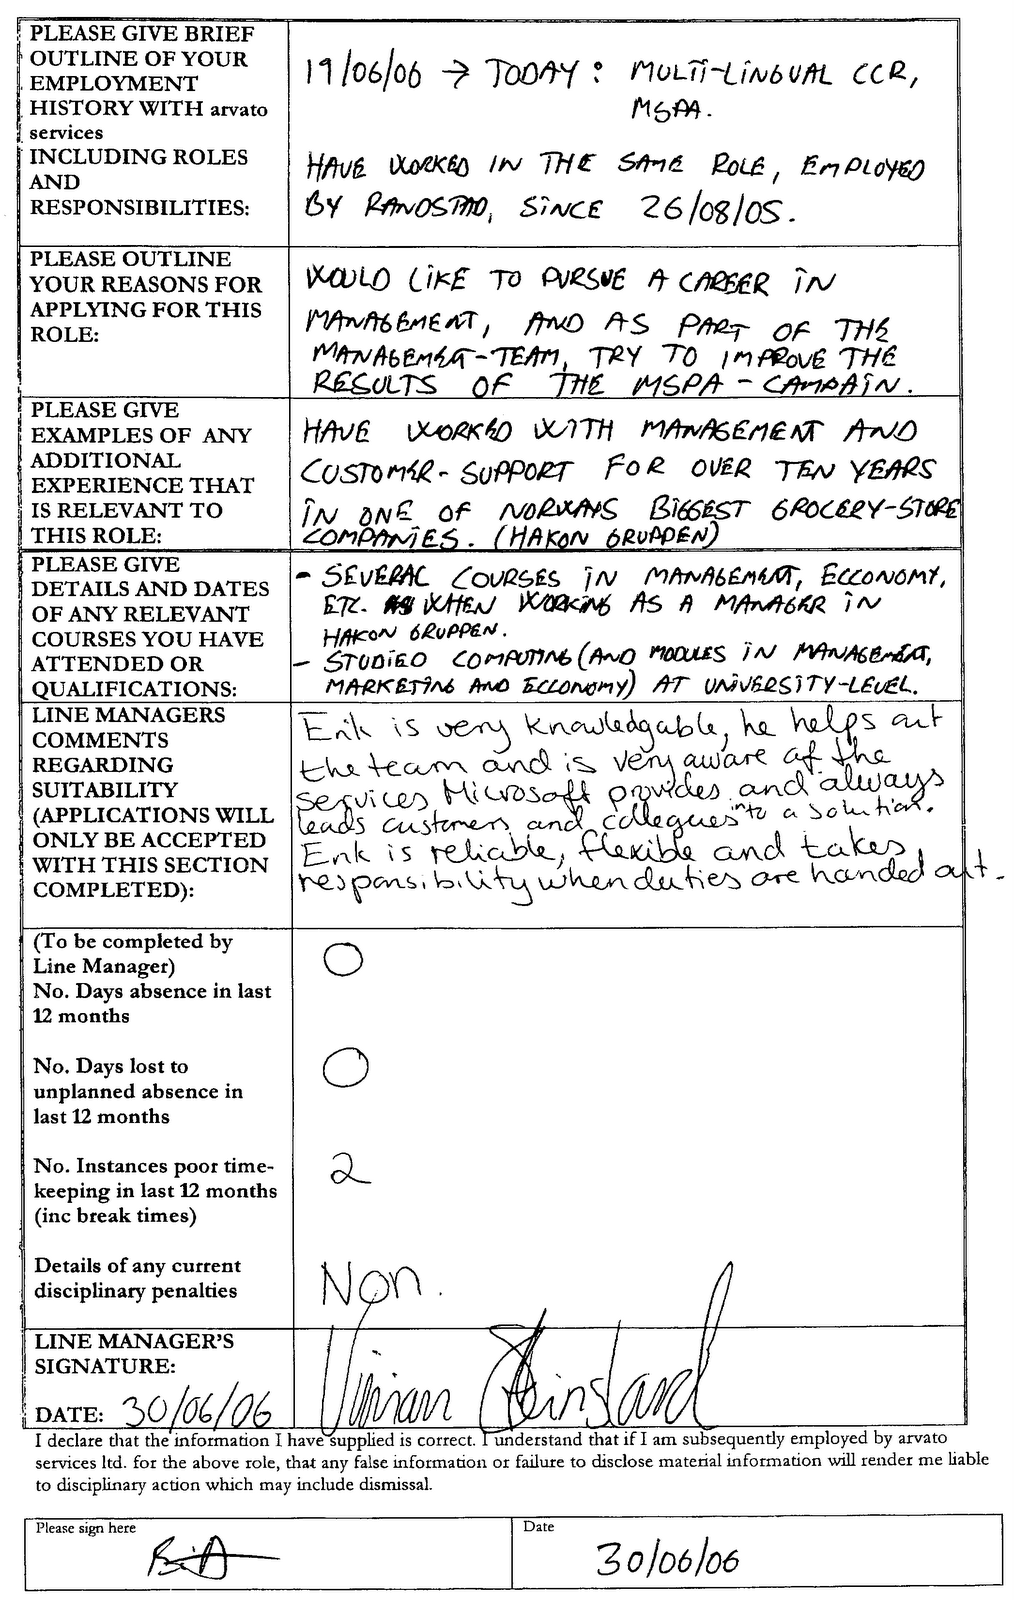 PLEASE GIVE BRIEF
OUTLINE OF YOUR
EMPLOYMENT
HISTORY WITH arvato
services
INCLUDING ROLES
AND
RESPONSIBILITIES:
19/06/06 → TODAY: MULTI-LINGUAL CCR,
MSPA.
HAVE WORKED IN THE SAME ROLE, EMPLOYED
BY RANDSTAD, SINCE 26/08/05.
PLEASE OUTLINE
YOUR REASONS FOR
APPLYING FOR THIS
ROLE:
WOULD LIKE TO PURSUE A CAREER IN
MANAGEMENT, AND AS PART OF THE
MANAGEMENT-TEAM, TRY TO IMPROVE THE
RESULTS OF THE MSPA-CAMPAIN.
PLEASE GIVE
EXAMPLES OF ANY
ADDITIONAL
EXPERIENCE THAT
IS RELEVANT TO
THIS ROLE:
HAVE WORKED WITH MANAGEMENT AND
CUSTOMER-SUPPORT FOR OVER TEN YEARS
IN ONE OF NORWAYS BIGGEST GROCERY-STORE
COMPANIES. (HAKON GRUPPEN)
PLEASE GIVE
DETAILS AND DATES
OF ANY RELEVANT
COURSES YOU HAVE
ATTENDED OR
QUALIFICATIONS:
- SEVERAL COURSES IN MANAGEMENT, ECCONOMY,
ETC. WHEN WORKING AS A MANAGER IN
HAKON GRUPPEN.
- STUDIED COMPUTING (AND MODULES IN MANAGEMENT,
MARKETING AND ECCONOMY) AT UNIVERSITY-LEVEL.
LINE MANAGERS
COMMENTS
REGARDING
SUITABILITY
(APPLICATIONS WILL
ONLY BE ACCEPTED
WITH THIS SECTION
COMPLETED):
Erik is very knowledgable, he helps out
the team and is very aware of the
services Microsoft provides and always
leads customers and collegues into a solution.
Erik is reliable, flexible and takes
responsibility when duties are handed out.
(To be completed by
Line Manager)
No. Days absence in last
12 months
0
No. Days lost to
unplanned absence in
last 12 months
0
No. Instances poor time-
keeping in last 12 months
(inc break times)
2
Details of any current
disciplinary penalties
Non.
LINE MANAGER'S
SIGNATURE:
Vivian
DATE: 30/06/06
I declare that the information I have supplied is correct. I understand that if I am subsequently employed by arvato
services ltd. for the above role, that any false information or failure to disclose material information will render me liable
to disciplinary action which may include dismissal.
Please sign here
Date
30/06/06